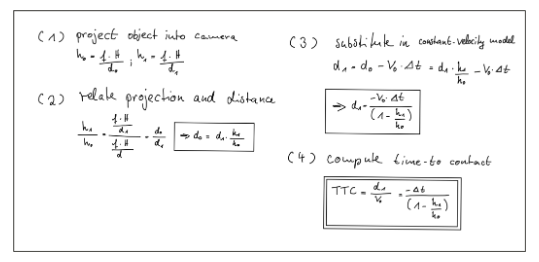 (1) project object into camera
h₀ = f·H/d₀ ; h₁ = f·H/d₁
(2) relate projection and distance
h₁/h₀ = (f·H/d₁)/(f·H/d) = d₀/d₁ ⇒ d₀ = d₁·h₁/h₀
(3) substitute in constant-velocity model
d₁ = d₀ - V₀·Δt = d₁·h₁/h₀ - V₀·Δt
⇒ d₁ = -V₀·Δt/(1 - h₁/h₀)
(4) compute time-to contact
TTC = d₁/V₀ = -Δt/(1 - h₁/h₀)